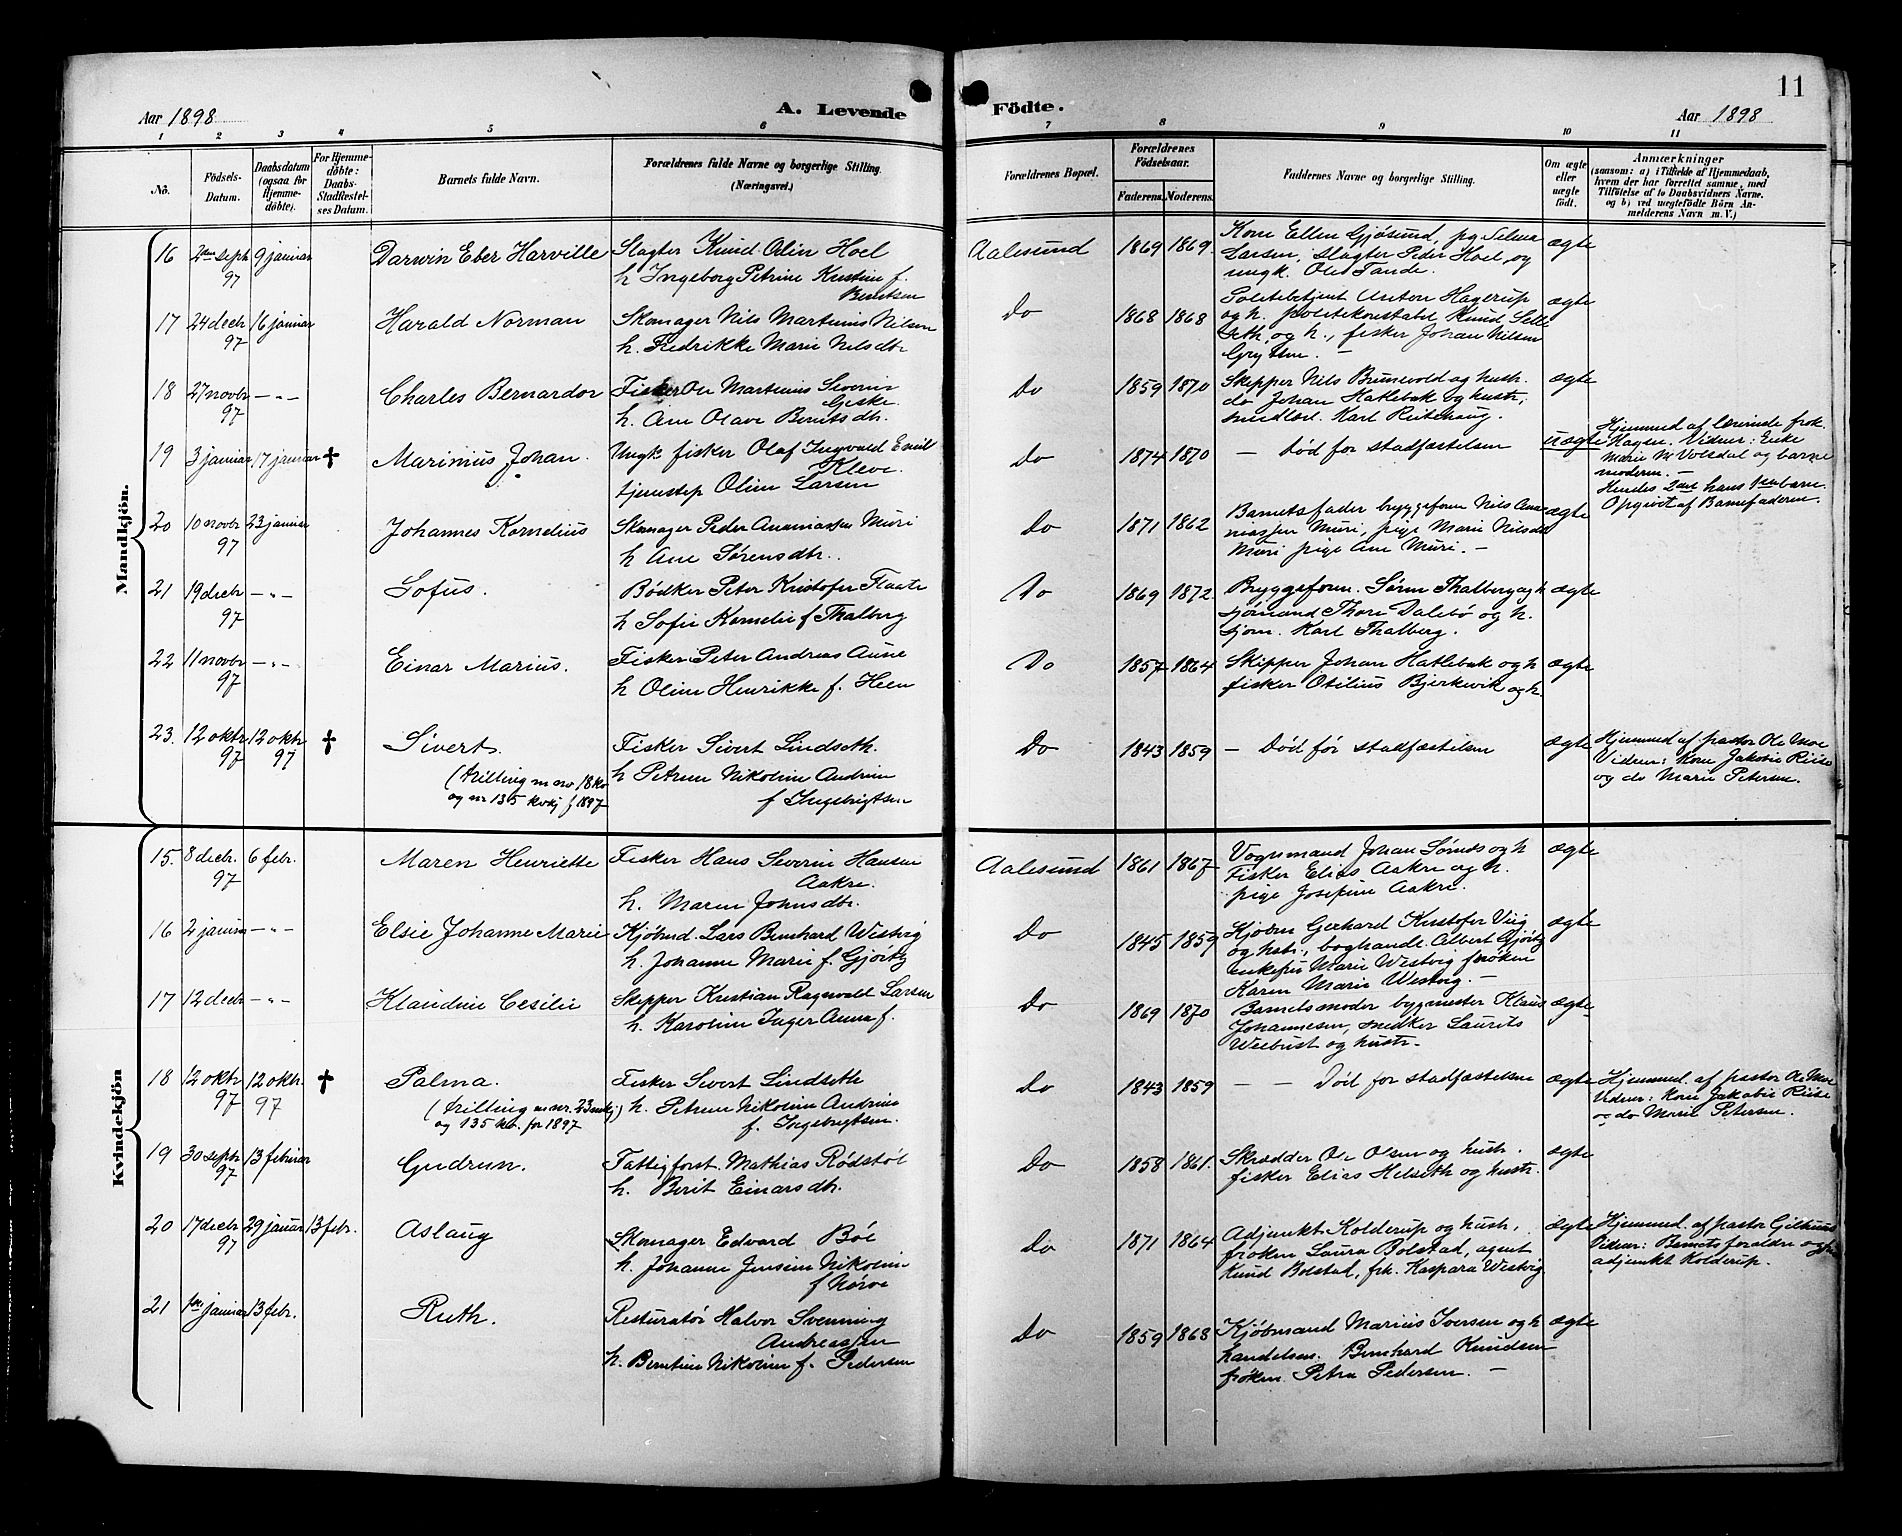 11
Aar 1898
A. Levende
Födte.
Aar 1898
1 2 3 4 5 6 7 8 9 10 11
No.
Födsels-Datum.
Daabsdatum (ogsaa for Hjemme-döbte).
For Hjemme-döbte: Daabs-Stadfæstel-ses Datum.
Barnets fulde Navn.
Forældrenes fulde Navne og borgerlige Stilling. (Næringsvei.)
Forældrenes Bopæl.
Forældrenes Födselsaar.
Faderens. Moderens.
Faddernes Navne og borgerlige Stilling.
Om ægte eller uægte födt.
Anmærkninger
(saasom: a) i Tilfælde af Hjemmedaab, hvem der har forrettet samme, med Tilföielse af to Daabsvidners Navne, og b) ved uægtefödte Börn An-melderens Navn m. V.)
Mandkjön.
16 2den septr 97 9 januar Darwin Eber Harville Slagter Knud Olin Hoel
h. Ingeborg Petrine Kristine f. Berntsen
Aalesund 1869 1869. Kone Ellen Gjøsund, pg Selma
Larsen, slagter Peder Hoel og
ungk. Ole Tande. ægte
17 24 decbr 97 16 januar Harald Norman Skomager Nils Martinius Nilsen
h. Fredrikke Marie Nilsdtr
Do 1868 1868 Politibetjent Anton Hagerup
og h. politikonstabel Knud Selle
seth og h., fisker Johan Nilsen
Grytten. – ægte
18 27 novbr 97 –"– Charles Bernardor Fisker Ole Martinius Severin
Giske.
h. Ane Olave Berntsdtr.
Do 1859 1870 Skipper Nils Brunvold og hustr.
do Johan Hatlebak og hustr,
snedker Karl Reitehaug. ægte
19 3 januar 17 januar † Marinius Johan. Ungk. fisker Olaf Ingvald Emil
Kleve.
tjenestep Oline Larsen
Do 1874 1870 – Død før stadfæstelsen uægte
Hjemmed af lærerinde frøk.
Hagen. Vidner: Enke
Marie M Volsdal og barne
moderen. –
Hendes 2det hans 1ste barn.
Opgivet af Barnefaderen
20 10 novbr 97 23 januar Johannes Kornelius Skomager Peder Ananiassen Muri
h Ane Sørensdtr.
Do 1871 1862 Barnets fader bryggeform Nils Ana
niassen Muri, pige Marie Nilsdtr
Muri pige Ane Muri. – ægte
21 19 decbr 97 –"– Sofus. Bødker Peter Kristofer Flaate
h Sofie Kornelie f Thalberg
Do 1869 1872. Bryggeform. Sørin Thalberg og h
sjømand Thore Dalebø og h.
sjøm. Karl Thalberg. ægte
22 11 novbr 97 –"– Einar Marius. Fisker Peter Andreas Aune
h Oline Henrikke f. Heen
Do 1857 1864 Skipper Johan Hatlebak og h
fisker Otilius Bjerkevik og h. ægte
23. 12 oktr 97 12 oktr 97 † Sivert.
(trilling m nr 18 kv
og nr 135 kvkj f 1897
Fisker Sivert Lindseth.
h Petrine Nikoline Andrine
f Ingebrigtsen
Do 1843 1859 – Død før stadfæstelsen ægte
Hjemmed af pastor Ole Moe
Vidner: Kone Jakobie Riise
og do Marie Petersen.
Kvindekjön
15. 8 decbr. 97 6 febr. Maren Henriette Fisker Hans Severin Hansen
Aakre.
h. Maren Johnsdtr.
Aalesund 1861 1867 Vognmand Johan Sørnes og h
Fisker Elias Aakre og h.
pige Josefine Aakre. ægte
16 2 januar –"– Elsie Johanne Marie Kjøbmd. Lars Bernhard Westvig
h. Johanne Marie f. Gjørtz
Do 1845 1859 Kjøbm Gerhard Kristofer Viig
og hstr., boghandl. Albert Gjørtz
enkefru Marie Westvig frøken
Karen Marie Westvig. – ægte
17 12 decbr –"– Klaudine Cesilie Skipper Kristian Ragnvald Larsen
h. Karoline Inger Anna f.
Do 1869 1870 Barnets moder bygmester Klaus
Johannesen, snedker Laurits
Weibust og hustr. ægte
18 12 oktr 97 12 oktr. 97 † Palma.
(trilling m nr. 23 mkj)
og 135 kk. for 1897
Fisker Sivert Lindseth
h. Petrine Nikoline Andrine
f. Ingebrigtsen.
Do 1843 1859 – – Død før stadfæstelsen ægte
Hjemmed. af pastor Ole Moe
Vidner: Kone Jakobie Riise
og do Marie Petersen.
19 30 septr 97 13 februar Gudrun. Fattigforst. Mathias Rødstøl
h. Berit Einarsdtr.
Do 1858 1861. Skrædder Ole Olsen og hustr.
fisker Elias Helseth og hustr. ægte
20 17 decbr 97 29 januar 13 febr. Aslaug Skomager Edvard Bøe
h. Johanne Jensine Nikoline
f Nørve
Do 1871 1864 Adjunkt Kolderup og hustr,
frøken Laura Bolstad, agent
Knud Bolstad, frk. Kaspara Westvig ægte
Hjemmed. af pastor Gilhuus
Vidner: Barnets foreldre og
adjunkt Kolderup.
21 1ste januar 13 febr. Ruth. Resturatør Halvor Svenning
Andreassen
h. Berntine Nikoline f. Pedersen
Do 1859 1868 Kjøbmand Marius Iversen og h
handelsm. Bernhard Knudsen
frøken Petra Pedersen. – ægte